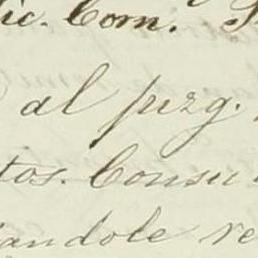 ic. Com.
al juzg.
tos. Consu
andole re